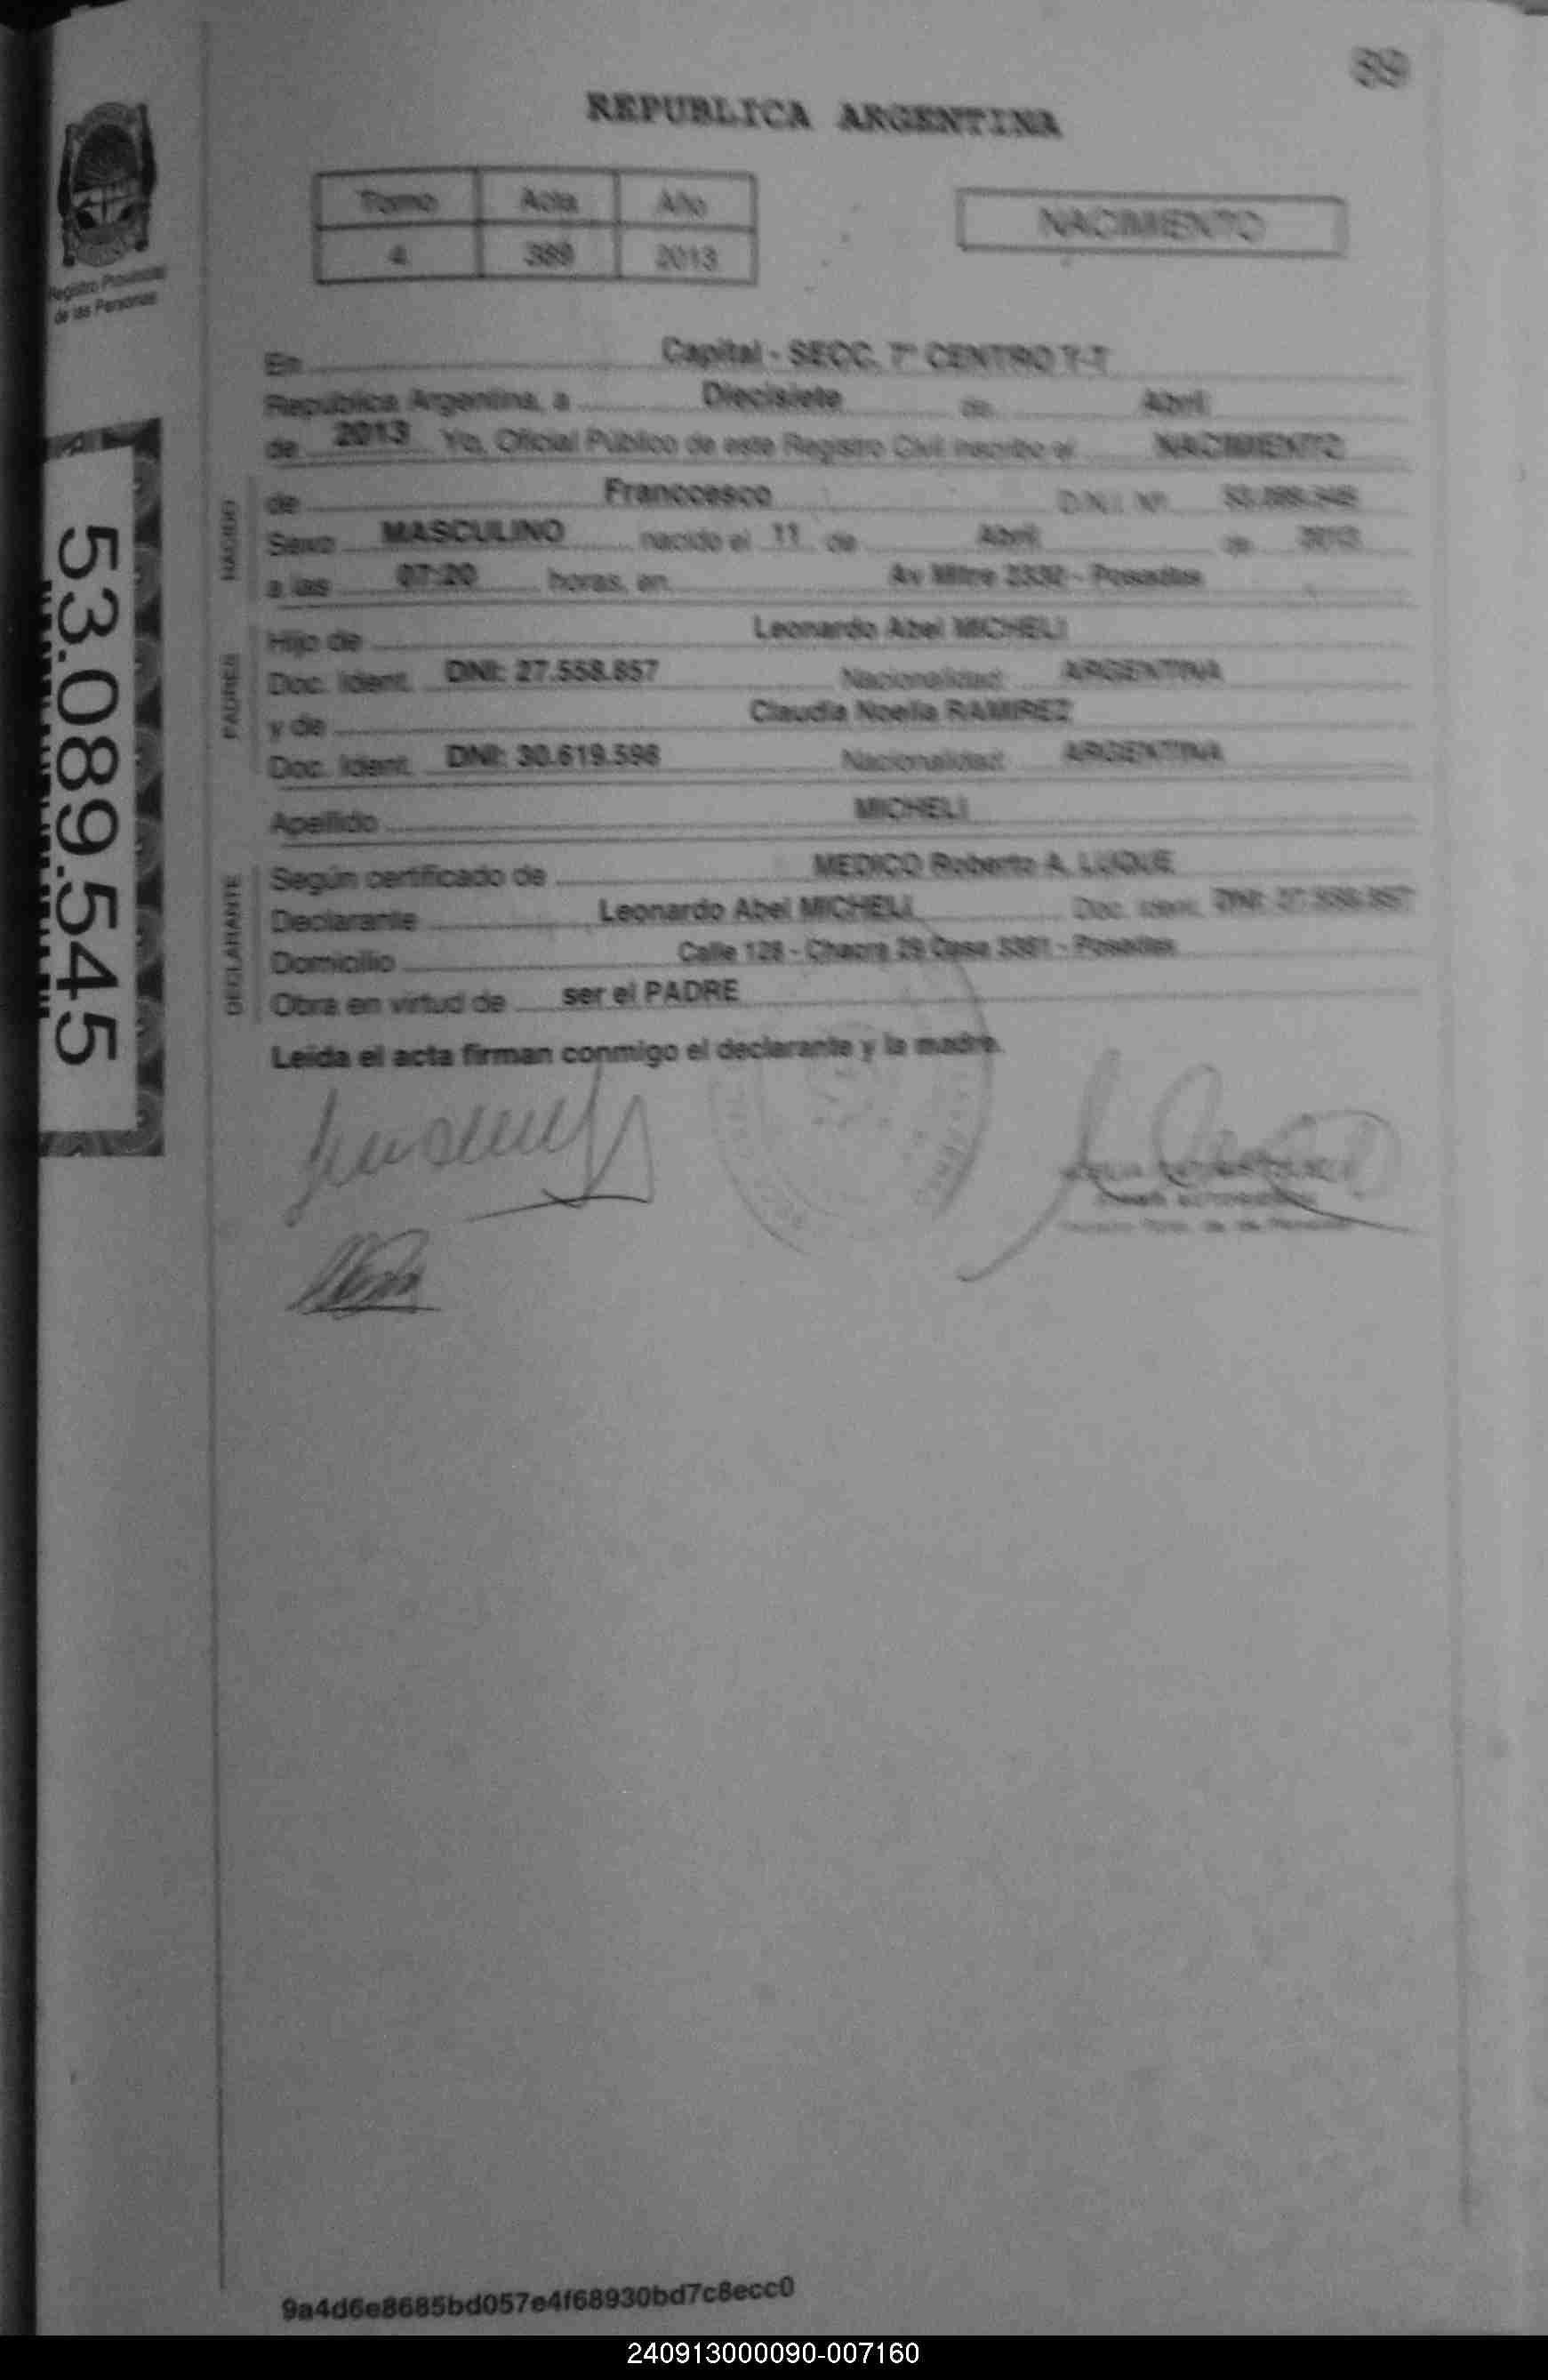 89
REPUBLICA ARGENTINA
Tomo Acta Año
4 389 2013
NACIMIENTO
Registro Provincial
de las Personas
En Capital - SECC. 7° CENTRO T-T
República Argentina, a Diecisiete de Abril
de 2013 Yo, Oficial Público de este Registro Civil inscribo el NACIMIENTO
NACIDO
de Franccesco D.N.I. Nº
Sexo MASCULINO nacido el 11 de Abril de 2013
a las 07:20 horas, en Av Mitre 2332 - Posadas
PADRES
Hijo de Leonardo Abel MICHELI
Doc. Ident. DNI: 27.558.857 Nacionalidad ARGENTINA
y de Claudia Noelia RAMIREZ
Doc. Ident. DNI: 30.619.598 Nacionalidad ARGENTINA
Apellido MICHELI
DECLARANTE
Según certificado de MEDICO Roberto A. LUQUE
Declarante Leonardo Abel MICHELI Doc. Ident. DNI: 27.558.857
Domicilio Calle 128 - Chacra 29 Casa - Posadas
Obra en virtud de ser el PADRE
Leída el acta firman conmigo el declarante y la madre.
53.089.545
9a4d6e8685bd057e4f68930bd7c8ecc0
240913000090-007160